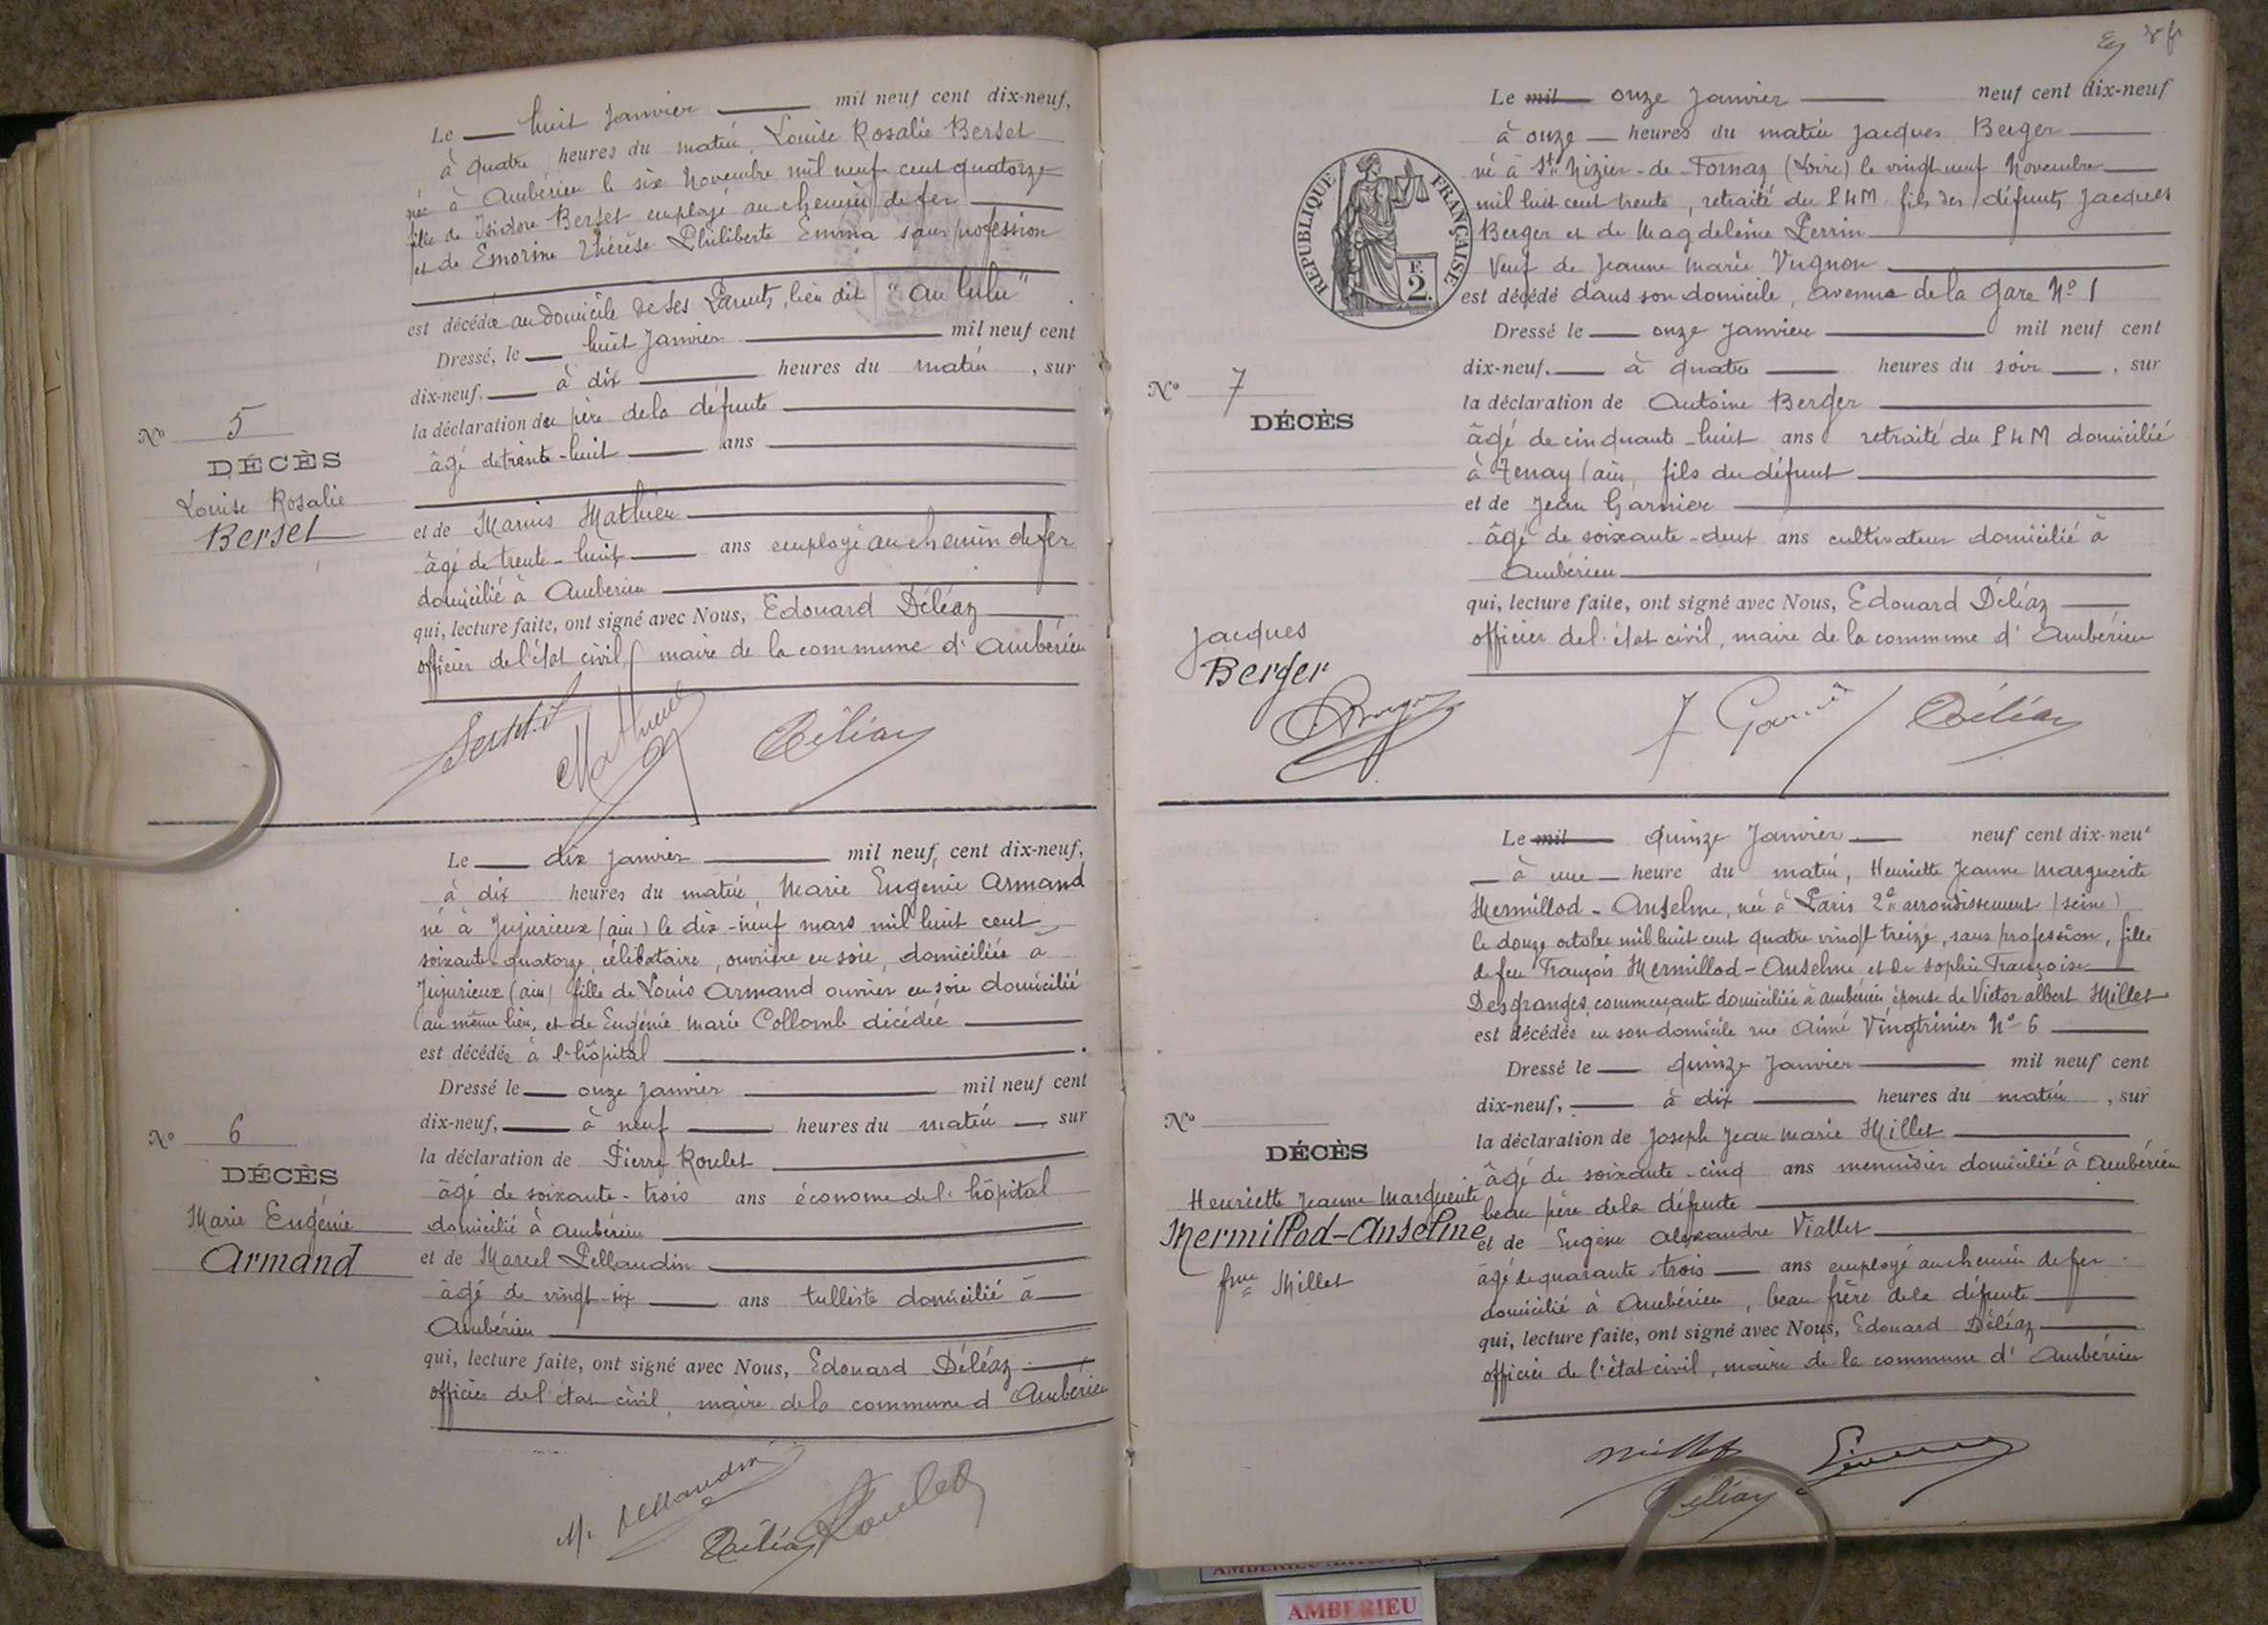 Le huit Janvier mil neuf cent dix-neuf,
à quatre heures du matin, Louise Rosalie Berset
née à Ambérieu le six Novembre mil neuf cent quatorze
fille de Isidore Berset employé au chemin de fer
et de Emorine Thérèse Philiberte Emma sans profession
est décédée au domicile de ses Parents, lieu dit "au lulu"
Dressé, le huit Janvier mil neuf cent
dix-neuf. à dix heures du matin, sur
la déclaration du père de la défunte
âgé de trente-huit ans
et de Marius Mathieu
âgé de trente-huit ans employé au chemin de fer
domicilié à Ambérieu
qui, lecture faite, ont signé avec Nous, Edouard Déléaz
officier de l'état civil, maire de la commune d'Ambérieu
N° 5
DÉCÈS
Louise Rosalie
Berset
Mathieu Déléaz
Le dix Janvier mil neuf cent dix-neuf,
à dix heures du matin, Marie Eugénie Armand
né à Jujurieux (ain) le dix-neuf mars mil huit cent
soixante-quatorze, célibataire, ouvrière en soie, domiciliée à
Jujurieux (ain) fille de Louis Armand ouvrier en soie domicilié
au même lieu, et de Eugénie Marie Collomb décédée
est décédée à l'hôpital.
Dressé le onze Janvier mil neuf cent
dix-neuf, à neuf heures du matin, sur
la déclaration de Pierre Roulet
âgé de soixante-trois ans économe de l'hôpital
domicilié à Ambérieu
et de Marcel Pellaudin
âgé de vingt-six ans tulliste domicilié à
Ambérieu
qui, lecture faite, ont signé avec Nous, Edouard Déléaz
officier de l'état civil, maire de la commune d'Ambérieu
N° 6
DÉCÈS
Marie Eugénie
Armand
M. Pellaudin
Déléaz Roulet
RÉPUBLIQUE FRANÇAISE
F.
2.
Le mil onze Janvier neuf cent dix-neuf
à onze heures du matin Jacques Berger
né à St Nizier-de-Fornas (Loire) le vingt neuf Novembre
mil huit cent trente, retraité du PLM fils des défunts Jacques
Berger et de Magdeleine Perrin
Veuf de Jeanne Marie Vugnon
est décédé dans son domicile, avenue de la Gare N° 1
Dressé le onze Janvier mil neuf cent
dix-neuf. à quatre heures du soir, sur
la déclaration de Antoine Berger
âgé de cinquante-huit ans retraité du PLM domicilié
à Tenay (ain, fils du défunt
et de Jean Garnier
âgé de soixante-deux ans cultivateur domicilié à
Ambérieu
qui, lecture faite, ont signé avec Nous, Edouard Déléaz
officier de l'état civil, maire de la commune d'Ambérieu
N° 7
DÉCÈS
Jacques
Berger
Berger J Garnier Déléaz
Le mil quinze Janvier neuf cent dix-neuf
à une heure du matin, Henriette Jeanne Marguerite
Mermillod-Anselme, née à Paris 2e arrondissement (seine)
le douze octobre mil huit cent quatre vingt treize, sans profession, fille
de feu François Mermillod-Anselme et de Sophie Françoise
Desgranges, commerçante domiciliée à Ambérieu épouse de Victor albert Millet
est décédée en son domicile rue Aimé Vingtrinier N° 6
Dressé le quinze Janvier mil neuf cent
dix-neuf, à dix heures du matin, sur
la déclaration de Joseph Jean Marie Millet
âgé de soixante-cinq ans menuisier domicilié à Ambérieu
beau père de la défunte
et de Eugène Alexandre Viallet
âgé de quarante-trois ans employé au chemin de fer
domicilié à Ambérieu, beau frère de la défunte
qui, lecture faite, ont signé avec Nous, Edouard Déléaz
officier de l'état civil, maire de la commune d'Ambérieu
N°
DÉCÈS
Henriette Jeanne Marguerite
Mermillod-Anselme
fme Millet
Millet
Déléaz
AMBERIEU